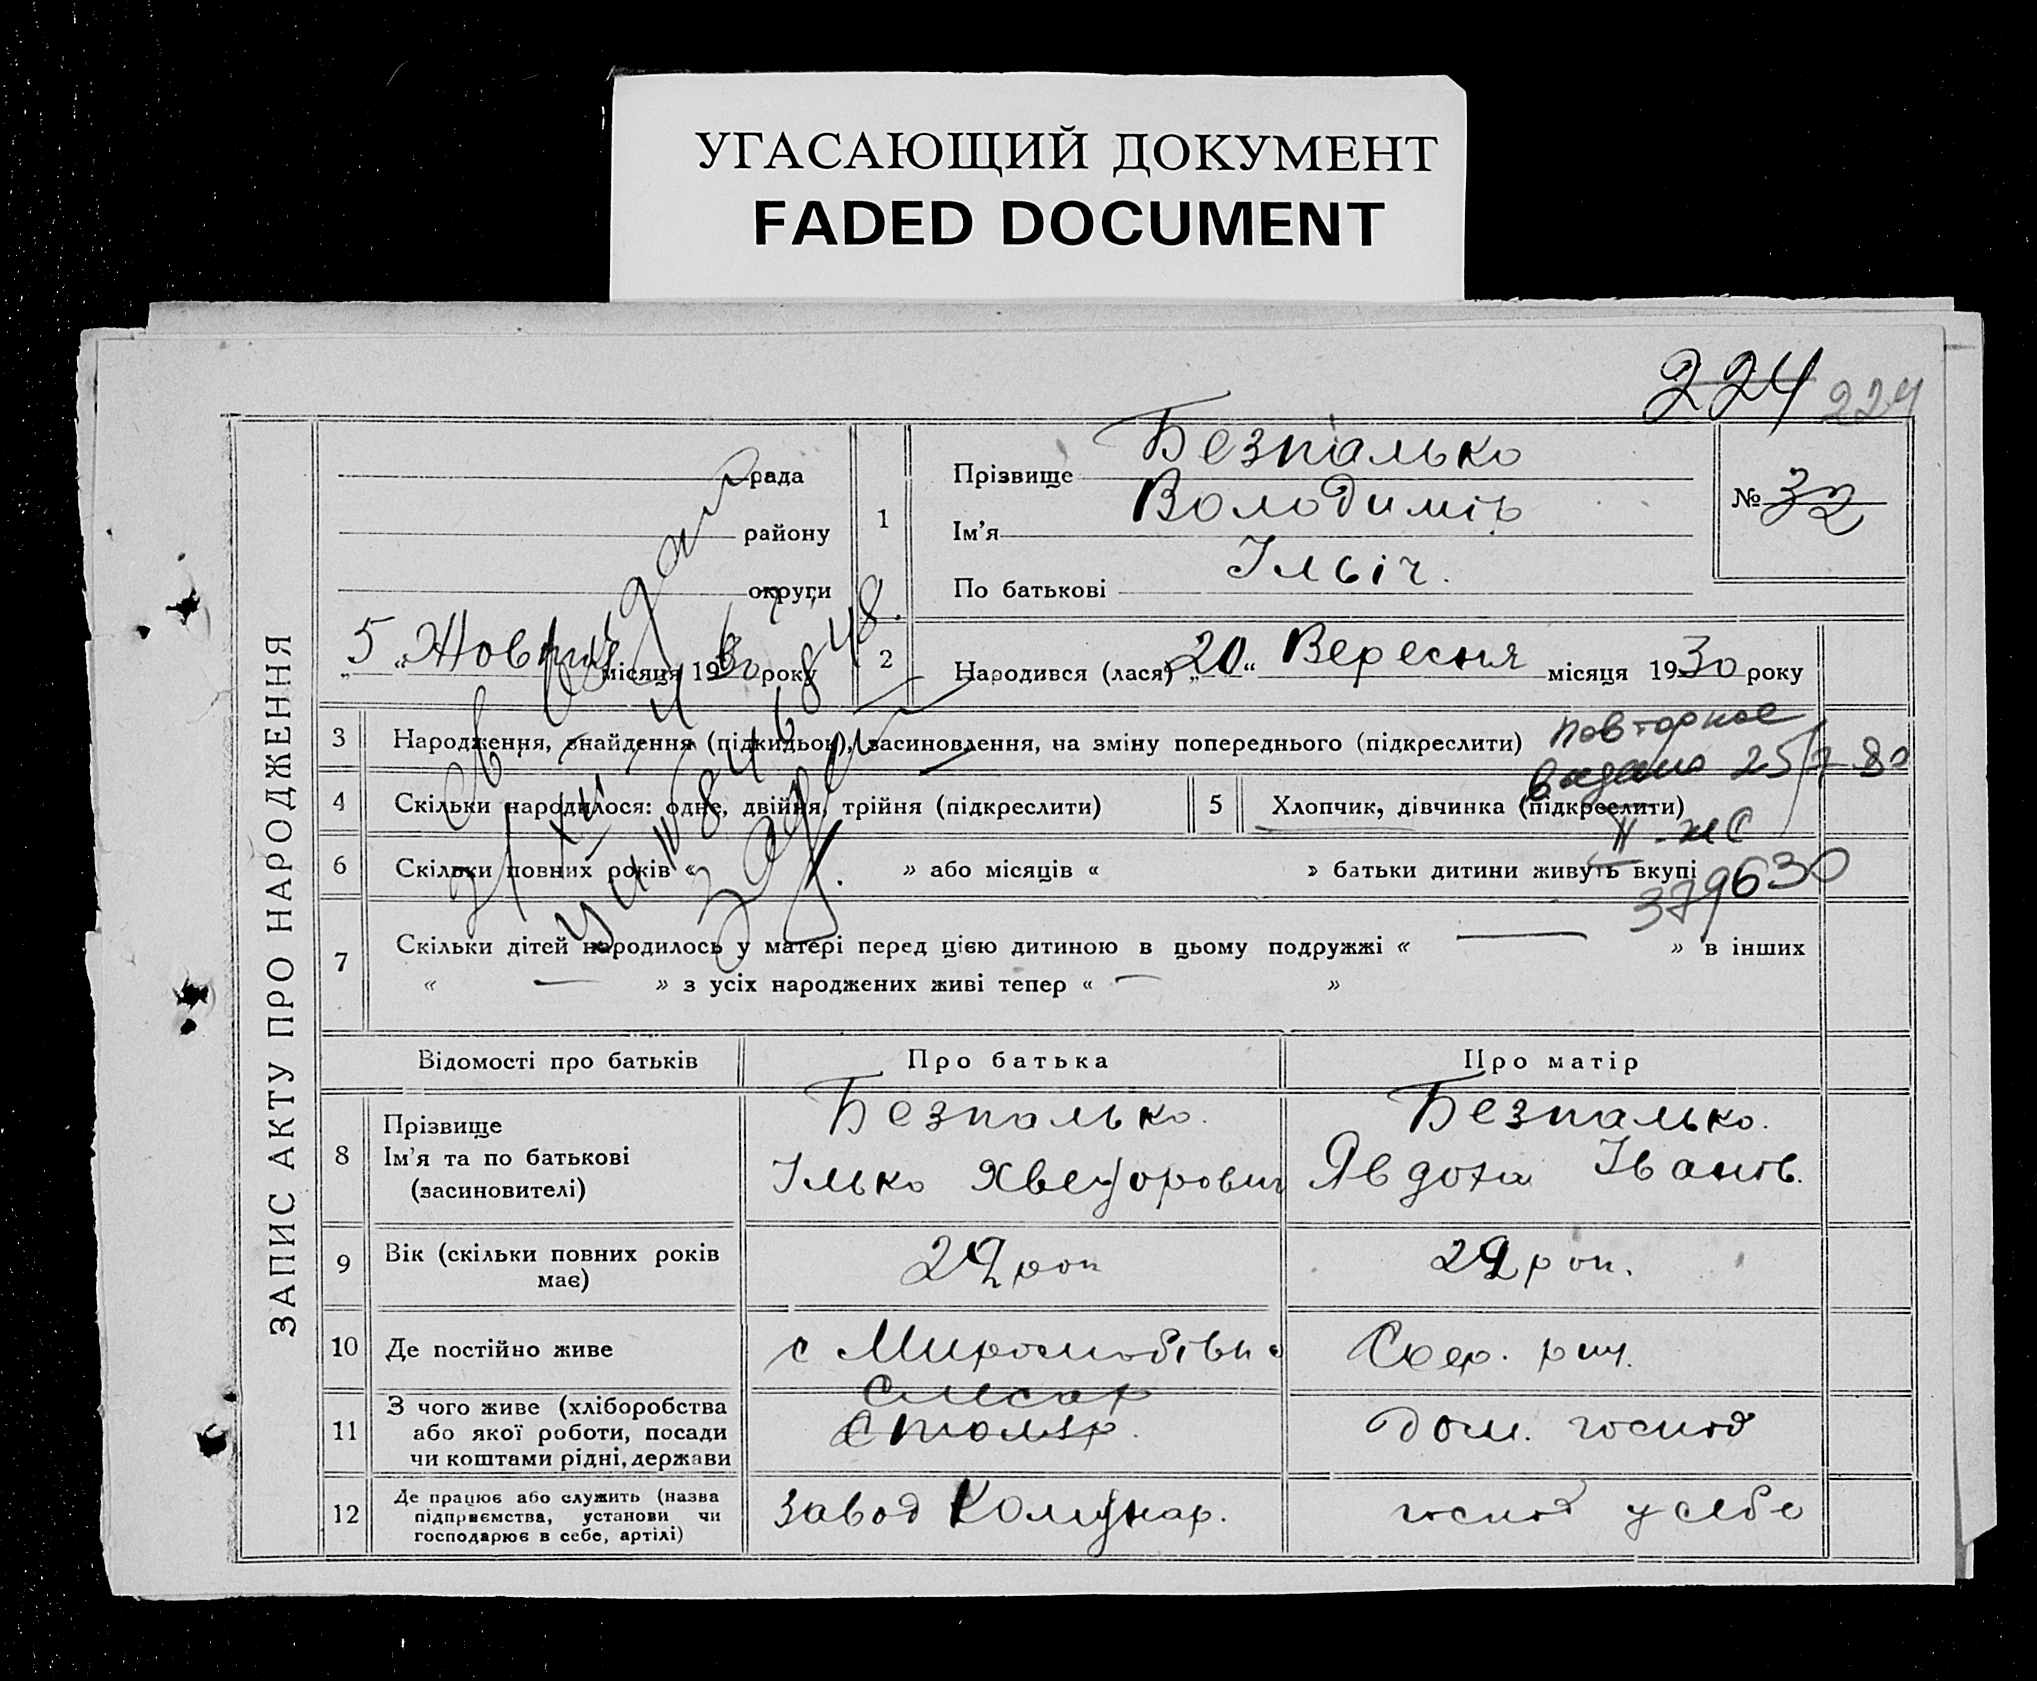 УГАСАЮЩИЙ ДОКУМЕНТ
FADED DOCUMENT
224 224
ЗАПИС АКТУ ПРО НАРОДЖЕННЯ
рада
району
округи
„5“ Жовтня місяця 1930 року
1
Прізвище Безпалько
Ім'я Володимір
По батькові Ільіч.
№ 32
2
Народився (лася) „20“ Вересня місяця 1930 року
3 Народження, знайдення (підкидьок), засиновлення, на зміну попереднього (підкреслити)
повторное
выдано 25/ 80
II-ЖС
379630
4 Скільки народилося: одне, двійня, трійня (підкреслити)
5 Хлопчик, дівчинка (підкреслити)
6 Скільки повних років « » або місяців « » батьки дитини живуть вкупі
7 Скільки дітей народилось у матері перед цією дитиною в цьому подружжі « — » в інших
« — » з усіх народжених живі тепер « — »
Відомості про батьків Про батька Про матір
8 Прізвище
Ім'я та по батькові
(засиновителі)
Безпалько.
Ілько Хведорович
Безпалько.
Явдоха Іванів.
9 Вік (скільки повних років
має)
29 рок
29 рок.
10 Де постійно живе
с
11 З чого живе (хліборобства
або якої роботи, посади
чи коштами рідні, держави
слесар
Столяр.
дом. господ
12 Де працює або служить (назва
підприємства, установи чи
господарює в себе, артілі)
завод Комунар.
господ у себе